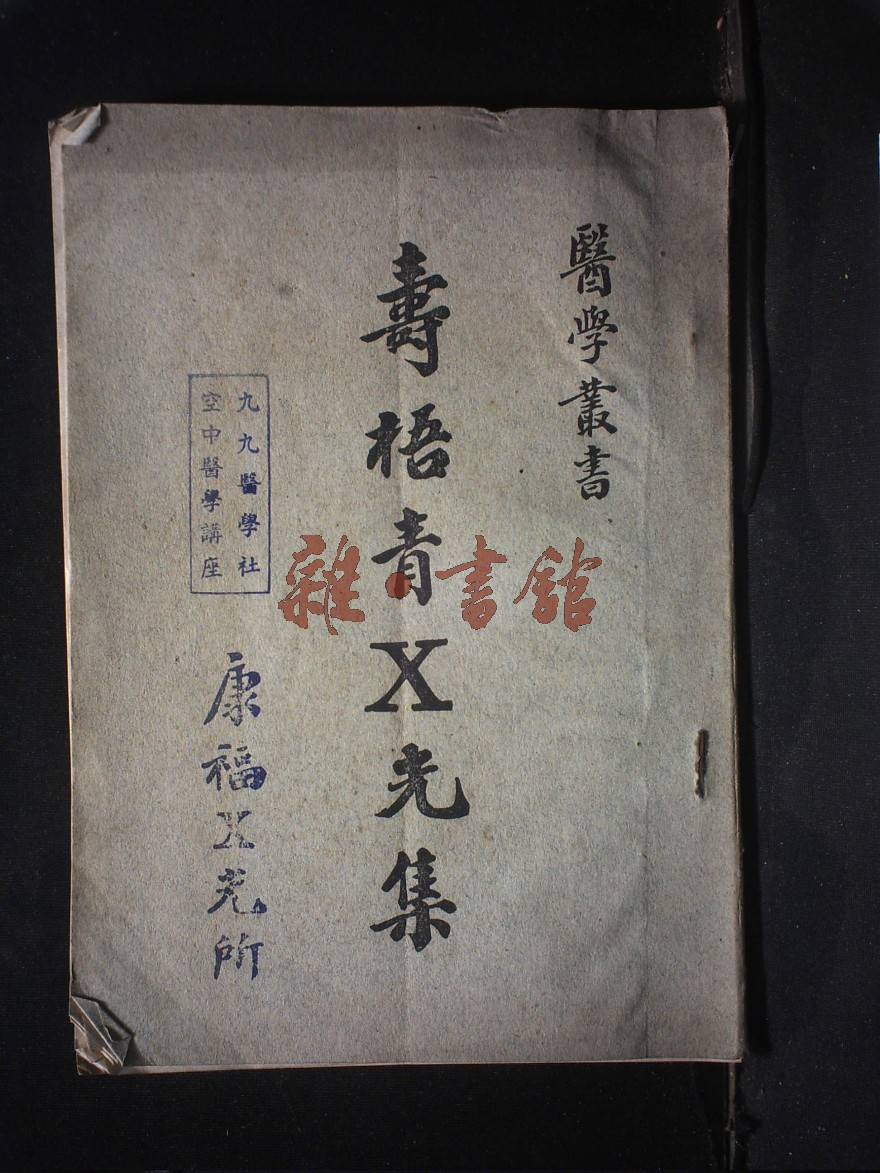 醫學叢書
壽梧青X光集
九九醫學社
空中醫學講座
康福X光所
雜·書館